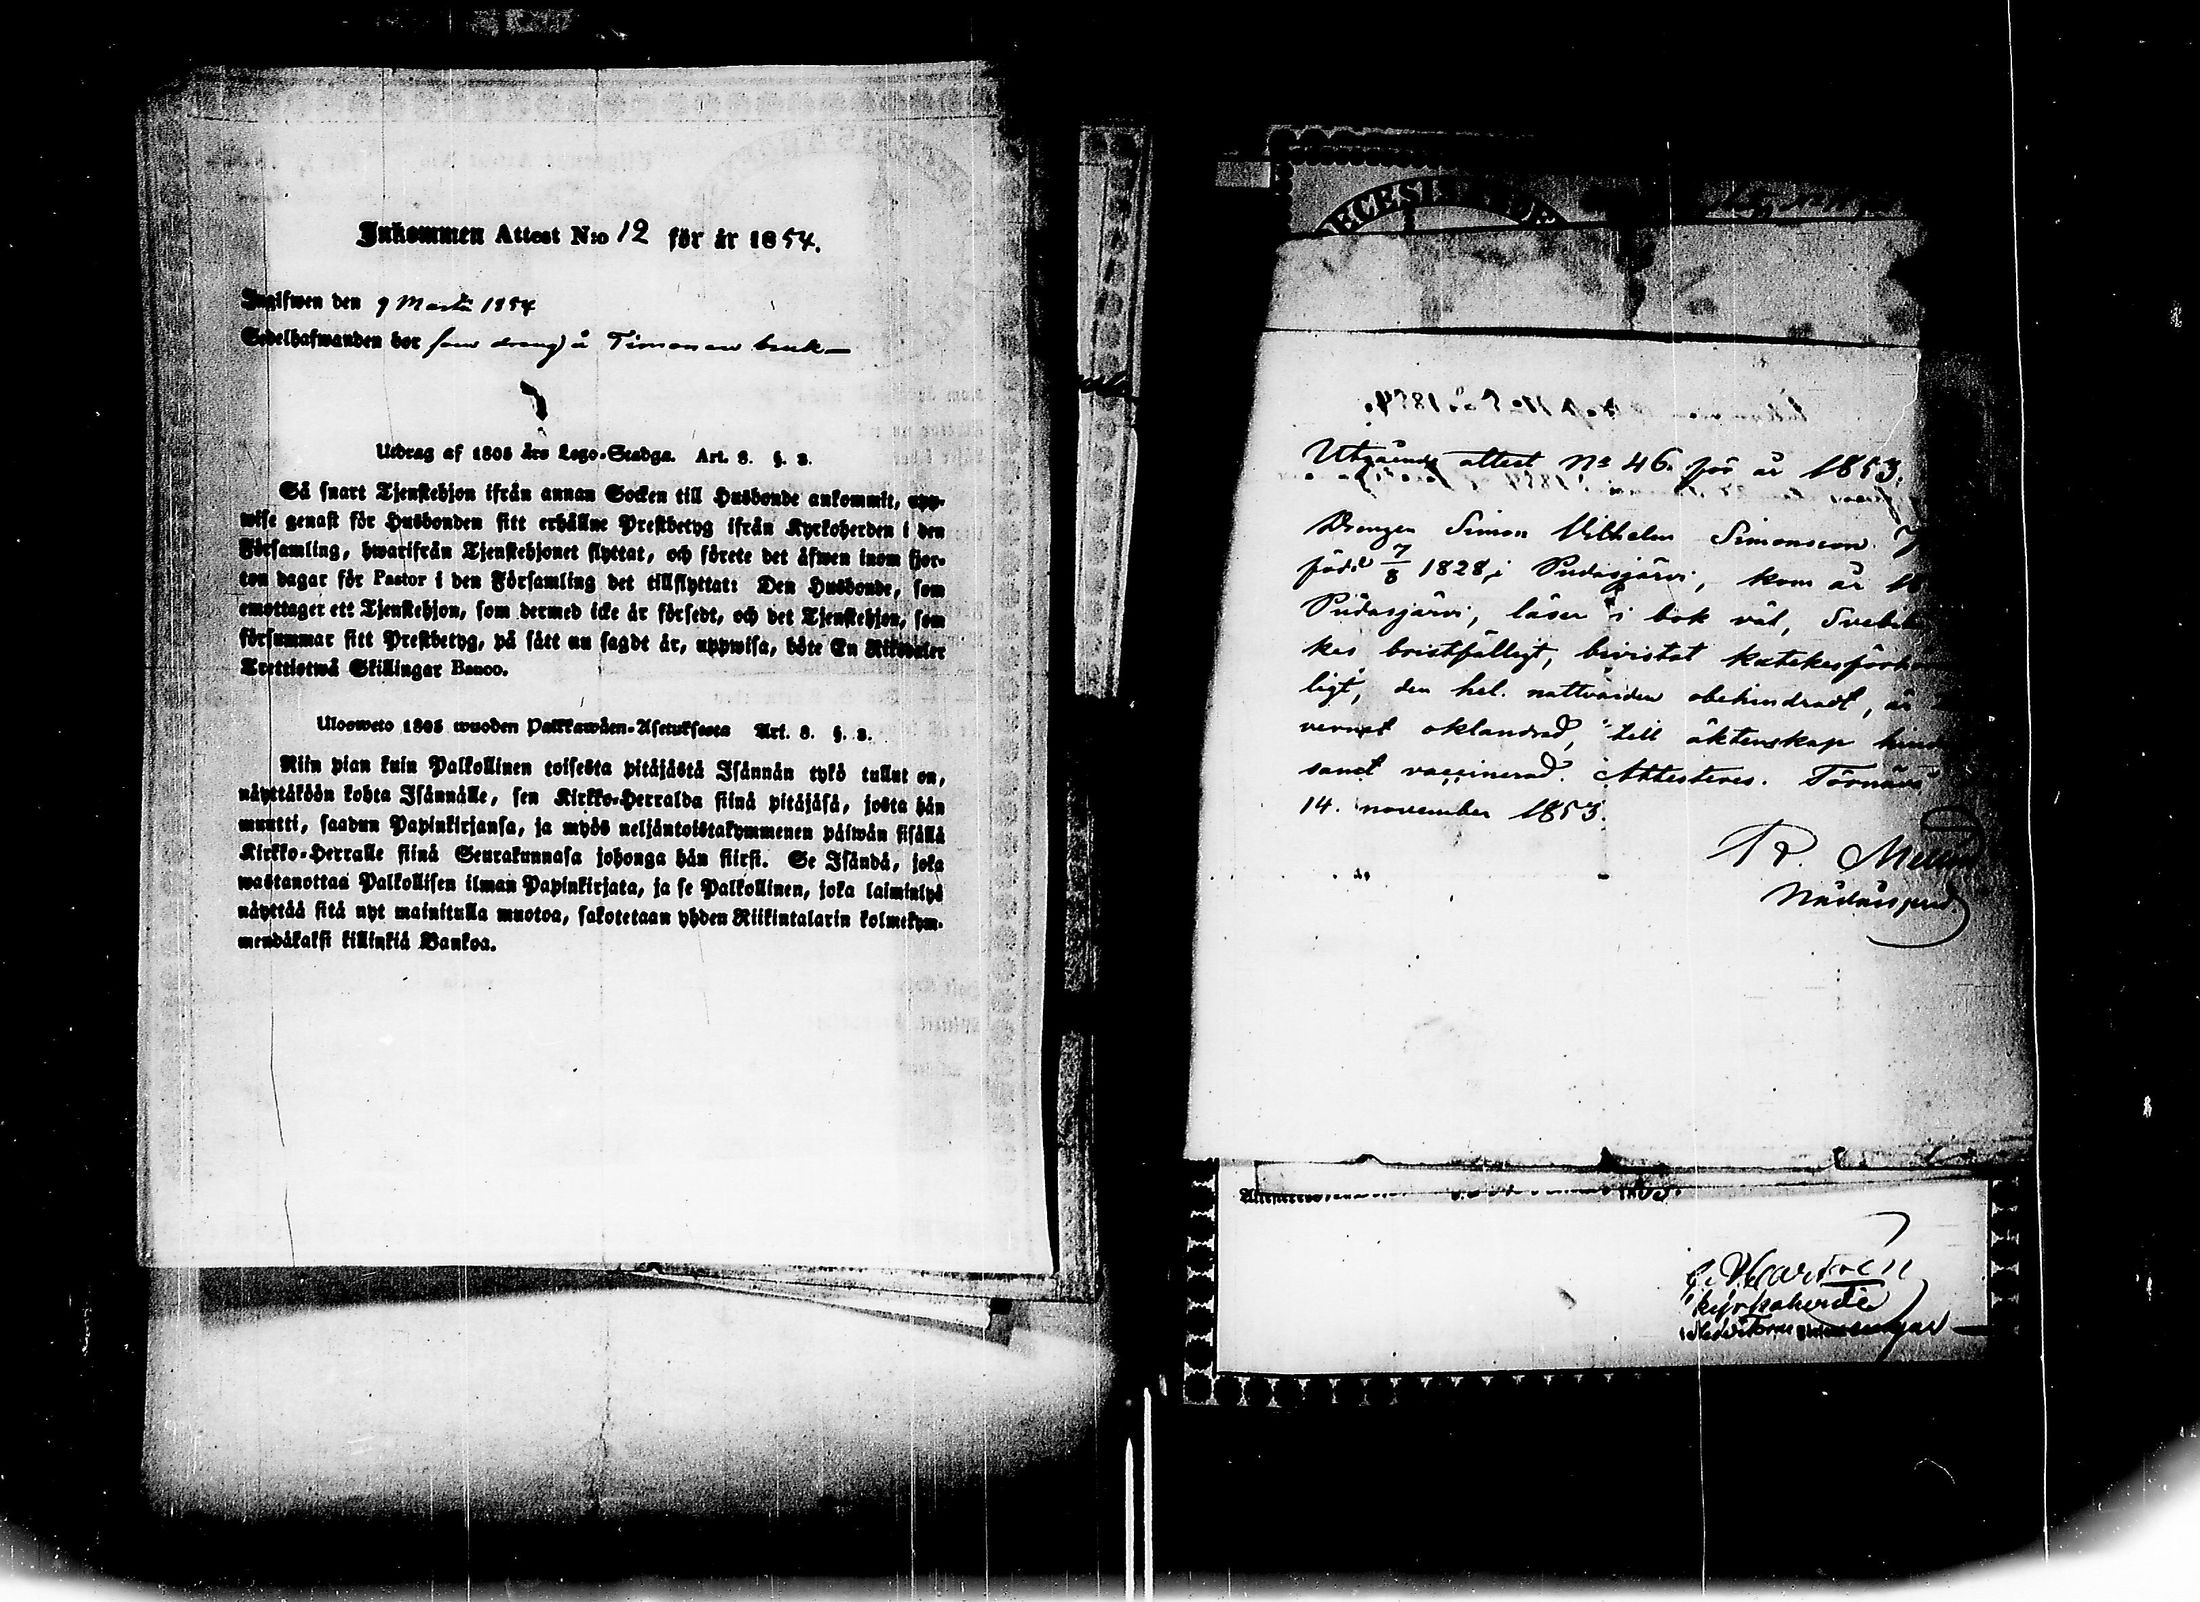 Inkommen Attest N:o 12 för år 1854.
Inglfwen den 9 Martii 1854
Sedelhafwanden bor som dreng å Timonen bruk
Utdrag af 1805 års Lego-Stadga. Art. 3. §. 2.
Så snart Tjenstehjon ifrån annan Socken till Husbonde ankommit, upp-
wise genast för Husbonden sitt erhållne Prestbetyg ifrån Kyrkoherden i den
Församling, hwarifrån Tjenstehjonet flyttat, och förete det äfwen inom fjor-
ton dagar för Pastor i den Församling det tillflyttat: Den Husbonde, som
emottager ett Tjenstehjon, som dermed icke är försedt, och det Tjenstehjon, som
försummar sitt Prestbetyg, på sätt nu sagdt är, uppwisa, böte En Riksdaler
Trettiotwå Skillingar Banco.
Ulosweto 1805 wuoden Palkkawäen-Asetuksesta Art. 3. §. 2.
Niin pian kuin Palkollinen toisesta pitäjästä Isännän tykö tullut on,
näyttäköön kohta Isännälle, sen Kirkko-Herralda siinä pitäjäsä, josta hän
muutti, saadun Papinkirjansa, ja myös neljäntoistakymmenen päiwän sisällä
Kirkko-Herralle siinä Seurakunnasa johonga hän siirsi. Se Isändä, joka
wastanottaa Palkollisen ilman Papinkirjata, ja se Palkollinen, joka laiminlyö
näyttää sitä nyt mainitulla muotoa, sakotetaan yhden Riikintalarin kolmekym-
mendäkaksi killinkiä Bankoa.
ECESIS
Utgående attest No 46. för år 1853.
Drengen Simon Vilhelm Simonsson
född 7/8 1828 i Pudasjärvi, kom år 18
Pudasjärvi, läser i bok väl, Svebil
kes bristfälligt, bevistat katekesförh
ligt, den hel. nattvarden obehindradt, är
vernet oklandrad, till äktenskap hind
samt vaccinerad. Attesteres. Törnävä
14. november 1853.
kyrkoherde